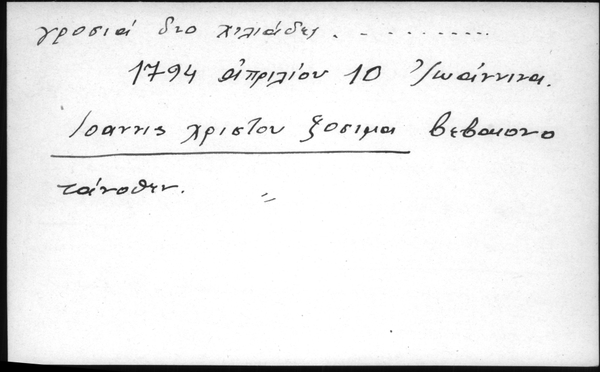 γροσιά διο χιλιάδες . . . . . . . . . .
1794 ἀπριλίου 10 Ἰωάννινα.
Ιοαννις χριστου ξοσιμα βεβαιονο
τάνοθεν.